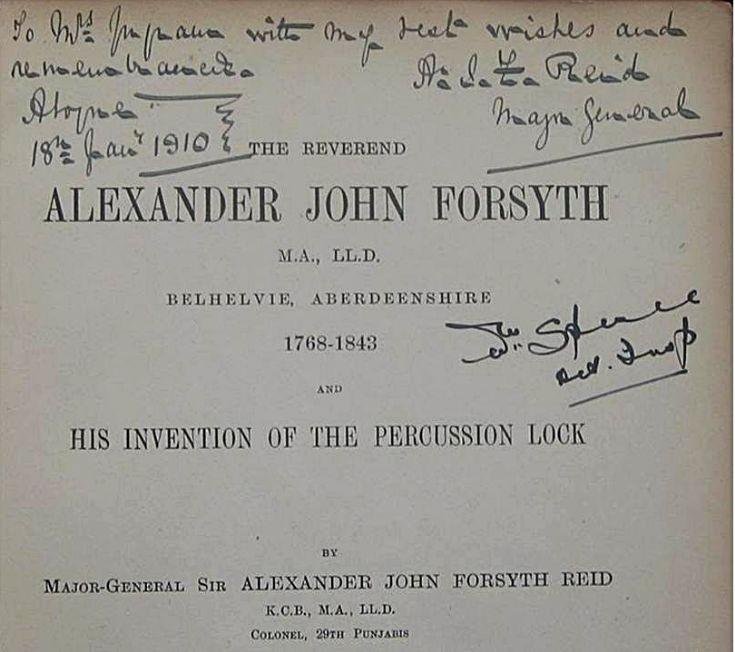 To Mrs with my best wishes and
remembrances.
A. J. F. Reid
Aboyne
Major General
18th Jany 1910
THE REVEREND
ALEXANDER JOHN FORSYTH
M.A., LL.D.
BELHELVIE, ABERDEENSHIRE
1768-1843
Wm. Spence
Det. Insp
AND
HIS INVENTION OF THE PERCUSSION LOCK
BY
MAJOR-GENERAL SIR ALEXANDER JOHN FORSYTH REID
K.C.B., M.A., LL.D.
COLONEL, 29TH PUNJABIS